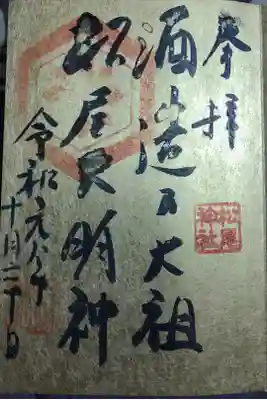 奉拝
酒造乃大祖
松尾大明神
令和元年十月二十日
松尾
神社